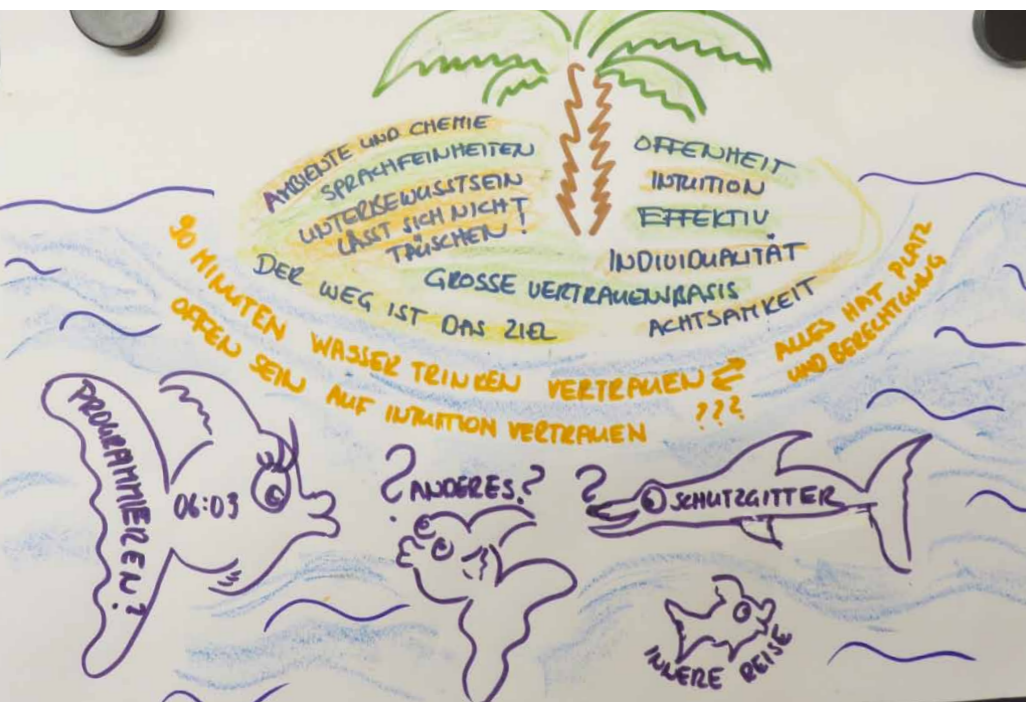 AMBIENTE UND CHEMIE
SPRACHFEINHEITEN
UNTERBEWUSSTSEIN
LÄSST SICH NICHT
TÄUSCHEN!
DER WEG IST DAS ZIEL
OFFENHEIT
INTUITION
EFFEKTIV
INDIVIDUALITÄT
GROSSE VERTRAUENSBASIS
ACHTSAMKEIT
90 MINUTEN WASSER TRINKEN VERTRAUEN ⇄
???
OFFEN SEIN AUF INTUITION VERTRAUEN
ALLES HAT PLATZ
UND BERECHTIGUNG
PROGRAMMIEREN?
06:03
? ANDERES?
? SCHUTZGITTER
INNERE REISE